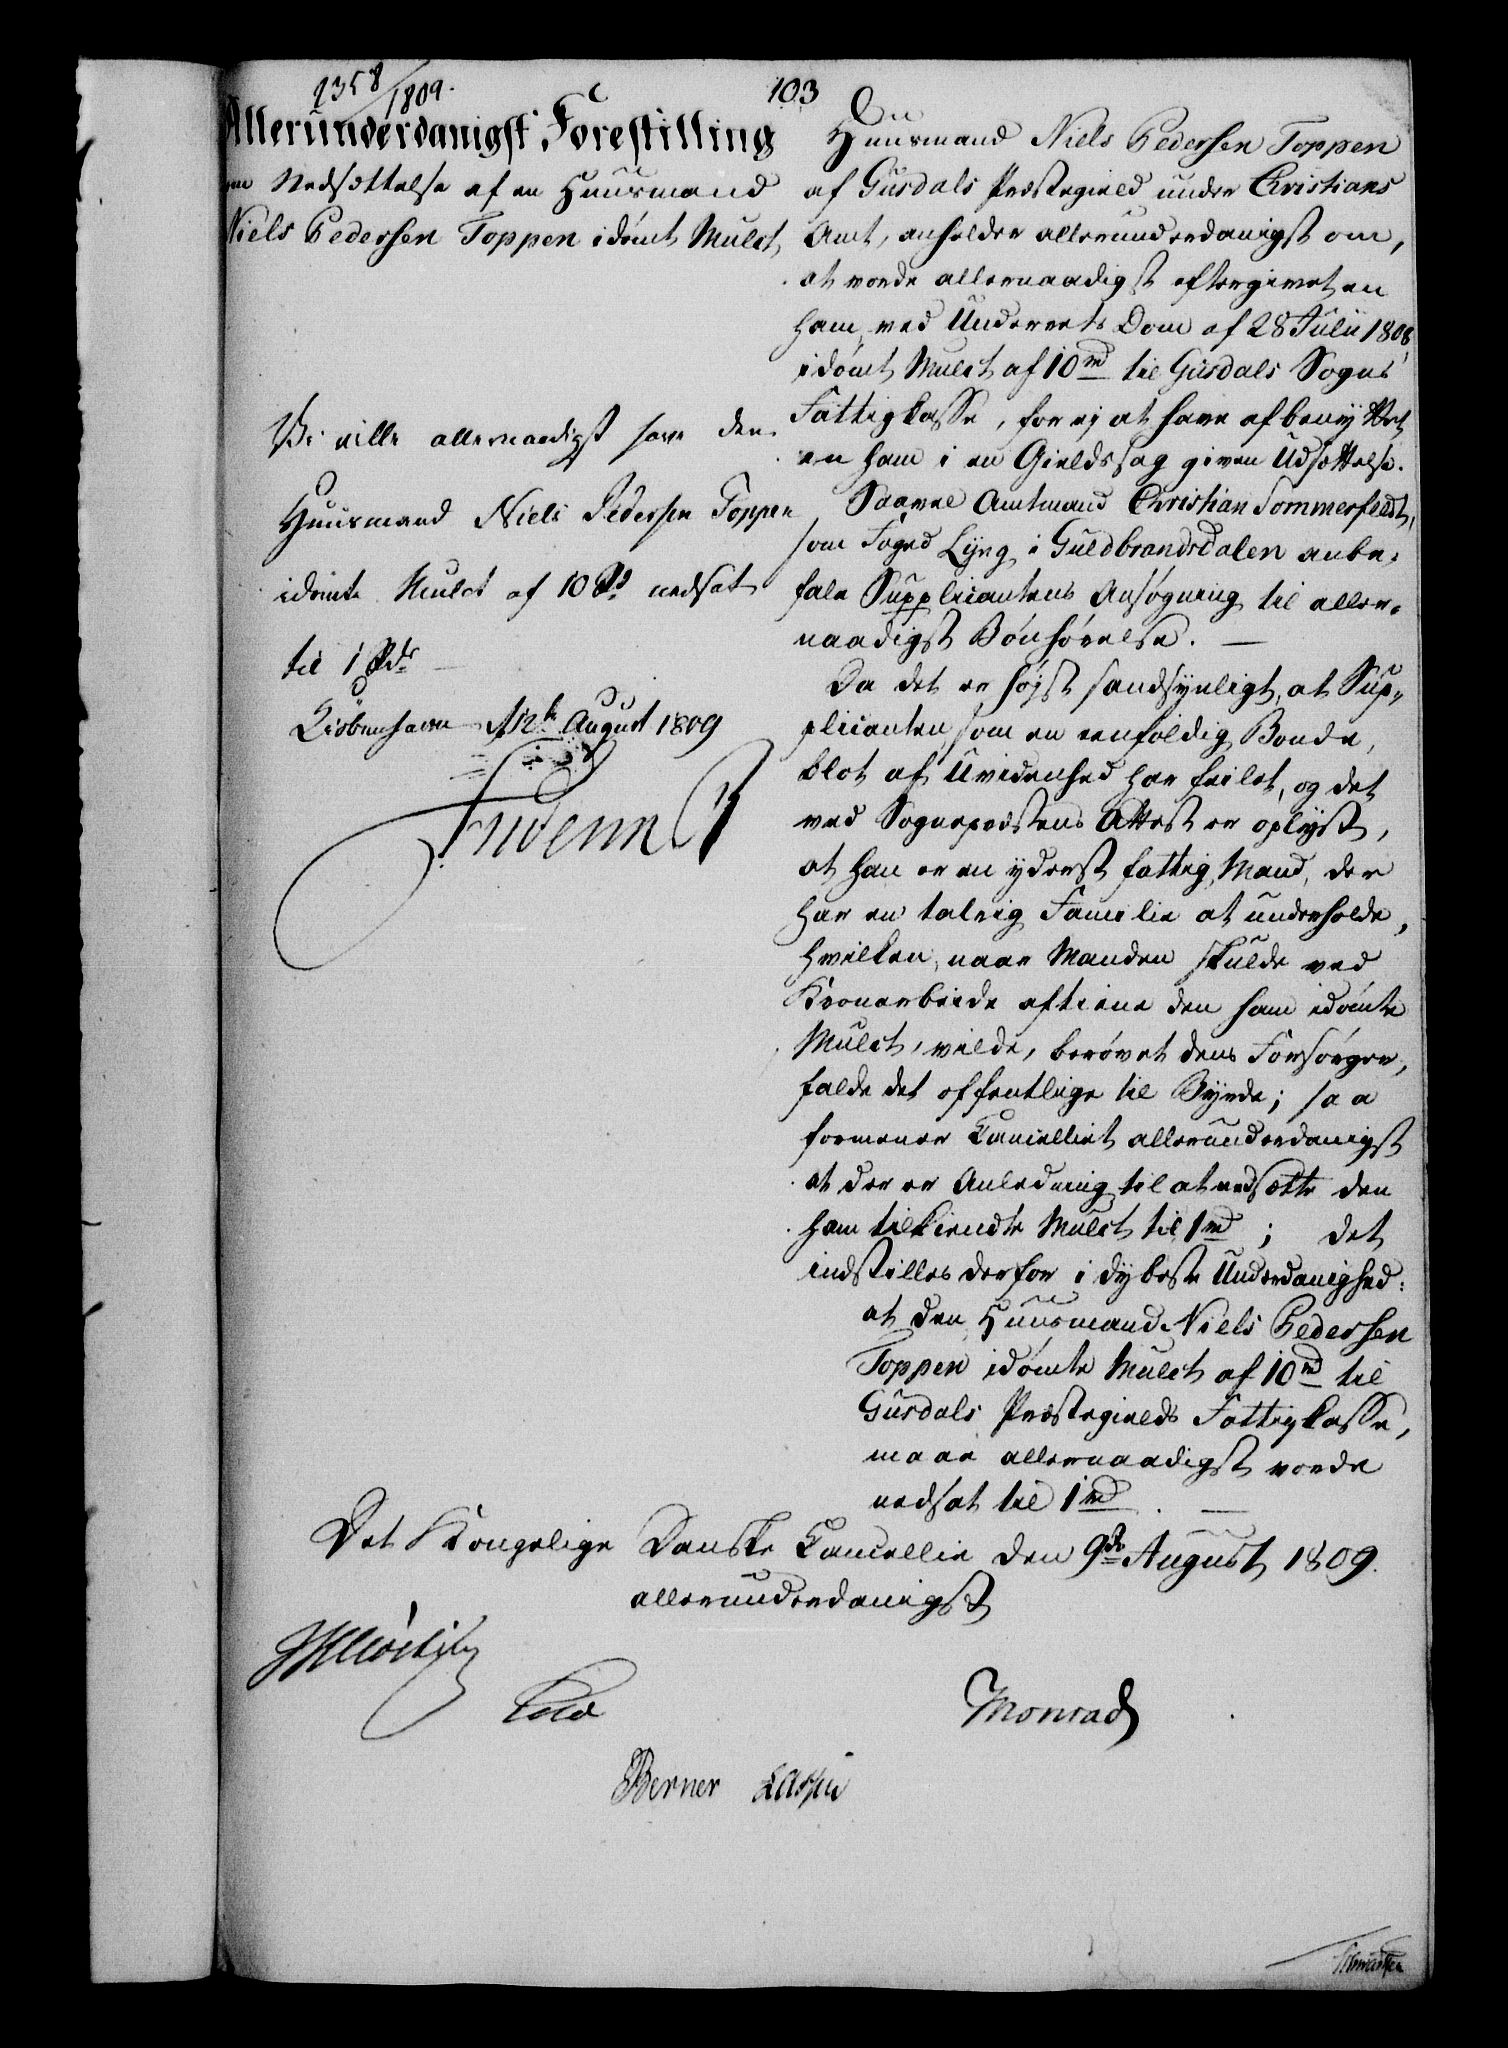 2358/1809.
103
Allerunderdanigst Forestilling
om Nedsættelse af en Huusmand
Niels Pedersen Toppen idömt Mulct
Vi ville allernaadigst have den
Huusmand Niels Pedersen Toppen
idömte Mulct af 10 Rd nedsat
til 1 Rdr
Kiöbenhavn d 12te August 1809
Friderich R
Huusmand Niels Pedersen Toppen
af Gusdals Præstegield under Christians
Amt, anholder allerunderdanigst om,
at vorde allernaadigst eftergivet en
ham ved Underrets Dom af 28 Julii 1808
idömt Mulct af 10 rd til Gusdals Sogns
Fattigkasse, for ej at have afbenyttet
en ham i en Gieldssag given Udsættelse.
Saavel Amtmand Christian Sommerfeldt,
som Foged Lyng i Guldbrandsdalen anbe-
fale Supplicantens Ansøgning til aller-
naadigst Bönhörelse.
Da det er højst sandsynligt, at Sup-
plicanten, som en eenfoldig Bonde,
blot af Uvidenhed har feilet, og det
ved Sognepræstens Attest er oplyst,
at han er en yderst fattig Mand, der
har en talrig Familie at underholde,
hvilken, naar Manden skulde ved
Kronarbeide aftiene den ham idömte
Mulct, vilde, berövet dens Forsörger,
falde det offentlige til Byrde; saa
formener Cancelliet allerunderdanigst
at der er Anledning til at nedsætte den
ham tilkiendte Mulct til 1 rd; det
indstilles derfor i dybeste Underdanighed:
at den Huusmand Niels Pedersen
Toppen idömte Mulct af 10 rd til
Gusdals Præstegields Fattigkasse,
maae allernaadigst vorde
nedsat til 1 rd.
Det Kongelige Danske Cancellie den 9de August 1809.
allerunderdanigst
Monrad
Berner Lassen